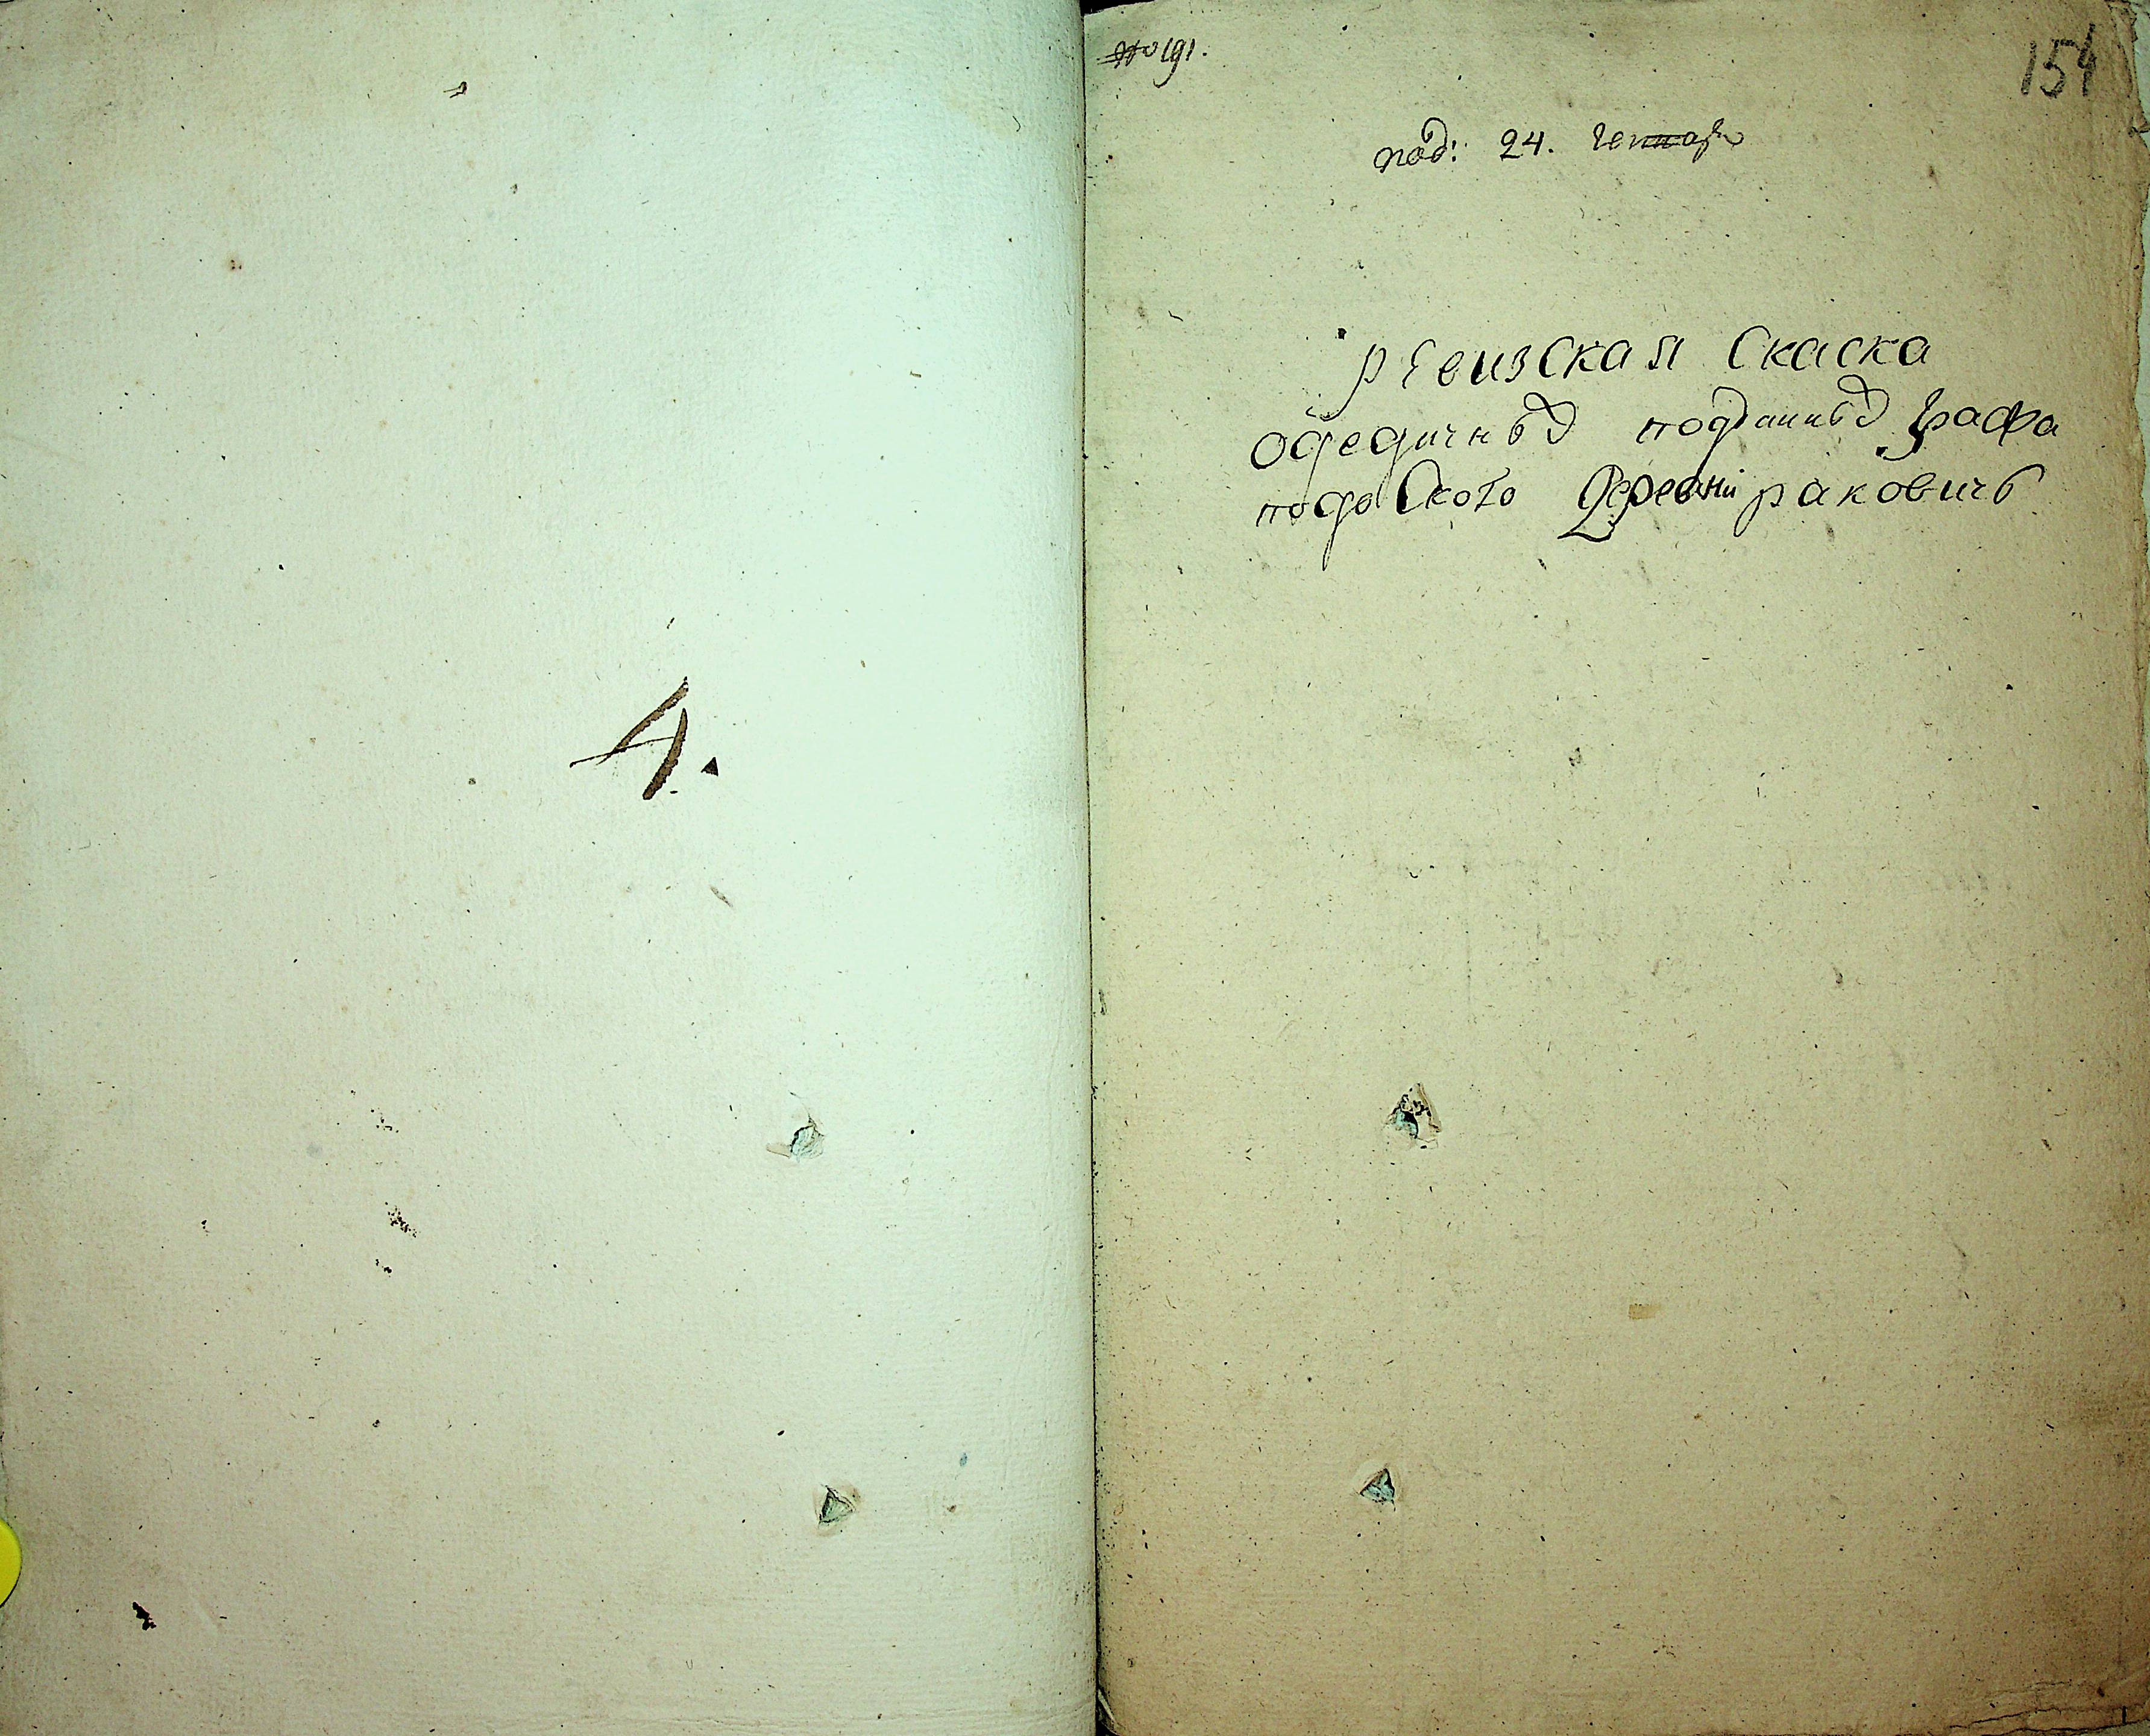 4.
№ 191.
154
под: 24. генваря
ревизская Скаска
о дедичных подданных Графа
подоского Деревни раковичь